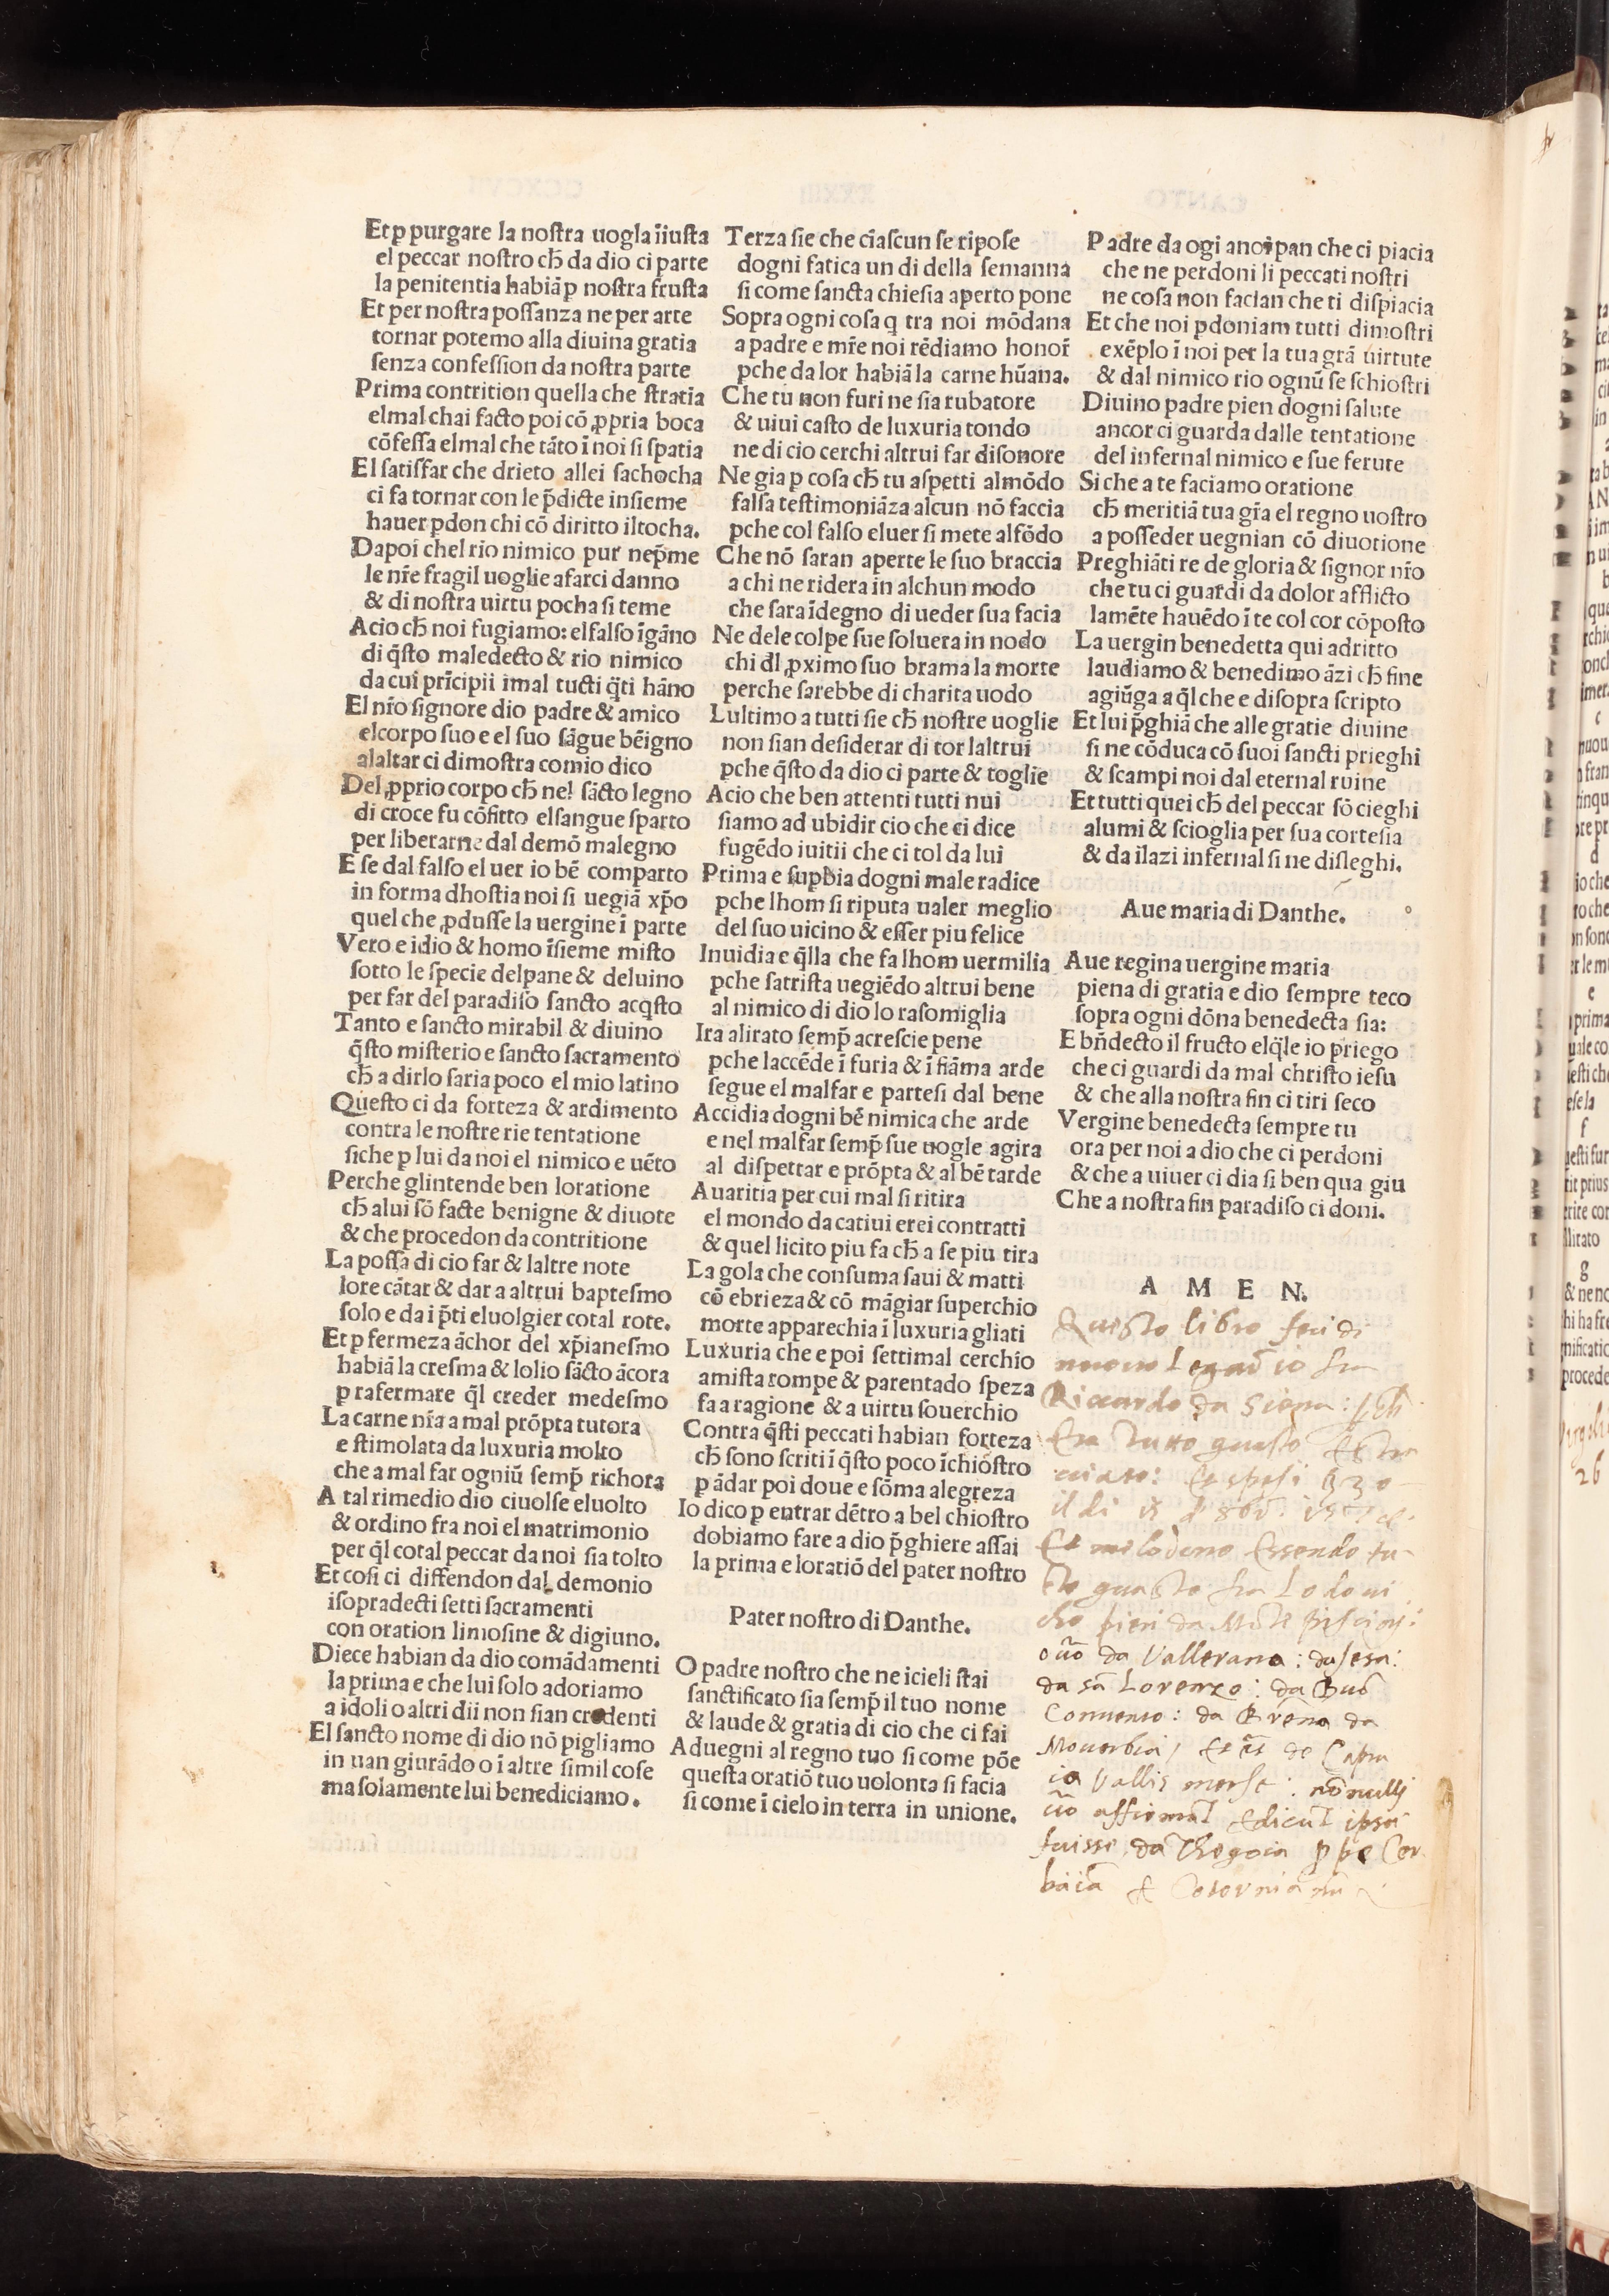 Et ꝑ purgare la noſtra uogla ĩiuſta
el peccar noſtro cħ da dio ci parte
la penitentia habiã ꝑ noſtra fruſta
Et per noſtra poſſanza ne per arte
tornar potemo alla diuina gratia
ſenza confeſſion da noſtra parte
Prima contrition quella che ſtratia
elmal chai facto poi cõ ꝓpria boca
cõfeſſa elmal che tãto ĩ noi ſi ſpatia
El ſatiſfar che drieto allei ſachocha
ci fa tornar con le p̃dicte inſieme
hauer ꝑdon chi cõ diritto iltocha.
Dapoi chel rio nimico pur nep̃me
le nr̃e fragil uoglie afarci danno
& di noſtra uirtu pocha ſi teme
Acio cħ noi fugiamo: elfalſo ĩgãno
di q̃ſto maledecto & rio nimico
da cui prĩcipii imal tucti q̃ti hãno
El nr̃o ſignore dio padre & amico
elcorpo ſuo e el ſuo ſãgue bẽigno
alaltar ci dimoſtra comio dico
Del ꝓprio corpo cħ nel ſãcto legno
di croce fu cõfitto elſangue ſparto
per liberarne dal demõ malegno
E ſe dal falſo el uer io bẽ comparto
in forma dhoſtia noi ſi uegiã xp̃o
quel che ꝓduſſe la uergine ĩ parte
Vero e idio & homo ĩſieme miſto
ſotto le ſpecie delpane & deluino
per far del paradiſo ſancto acq̃ſto
Tanto e ſancto mirabil & diuino
q̃ſto miſterio e ſancto ſacramento
cħ a dirlo ſaria poco el mio latino
Queſto ci da forteza & ardimento
contra le noſtre rie tentatione
ſiche ꝑ lui da noi el nimico e uẽto
Perche glintende ben loratione
cħ alui ſõ facte benigne & diuote
& che procedon da contritione
La poſſa di cio far & laltre note
lore cãtar & dar a altrui bapteſmo
ſolo e da i p̃ti eluolgier cotal rote.
Et ꝑ fermeza ãchor del xp̃ianeſmo
habiã la creſma & lolio ſãcto ãcora
ꝑ rafermare q̃l creder medeſmo
La carne nr̃a a mal prõpta tutora
e ſtimolata da luxuria molto
che a mal far ogniũ ſemp̃ richora
A tal rimedio dio ciuolſe eluolto
& ordino fra noi el matrimonio
per q̃l cotal peccar da noi ſia tolto
Et coſi ci diffendon dal demonio
iſopradecti ſetti ſacramenti
con oration limoſine & digiuno.
Diece habian da dio comãdamenti
la prima e che lui ſolo adoriamo
a idoli o altri dii non ſian credenti
El ſancto nome di dio nõ pigliamo
in uan giurãdo o ĩ altre ſimil coſe
ma ſolamente lui benediciamo.
Terza ſie che ciaſcun ſe ripoſe
dogni fatica un di della ſemanna
ſi come ſancta chieſia aperto pone
Sopra ogni coſa q tra noi mõdana
a padre e mr̃e noi rẽdiamo honor̃
pche da lor habiã la carne hũana.
Che tu non furi ne ſia rubatore
& uiui caſto de luxuria tondo
ne di cio cerchi altrui far diſonore
Ne gia ꝑ coſa cħ tu aſpetti al mõdo
falſa teſtimoniãza alcun nõ faccia
pche col falſo eluer ſi mete alfõdo
Che nõ ſaran aperte le ſuo braccia
a chi ne ridera in alchun modo
che ſara ĩdegno di ueder ſua facia
Ne dele colpe ſue ſoluera in nodo
chi dl̃ ꝓximo ſuo brama la morte
perche ſarebbe di charita uodo
Lultimo a tutti ſie cħ noſtre uoglie
non ſian deſiderar di tor laltrui
pche q̃ſto da dio ci parte & toglie
Acio che ben attenti tutti nui
ſiamo ad ubidir cio che ci dice
fugẽdo iuitii che ci tol da lui
Prima e ſupbia dogni male radice
pche lhom ſi riputa ualer meglio
del ſuo uicino & eſſer piu felice
Inuidia e q̃lla che fa lhom uermilia
pche ſatriſta uegiẽdo altrui bene
al nimico di dio lo raſomiglia
Ira alirato ſemp̃ acreſcie pene
pche laccẽde ĩ furia & ĩ fiãma arde
ſegue el malfar e parteſi dal bene
Accidia dogni bẽ nimica che arde
e nel malfar ſemp̃ ſue uogle agira
al diſpettar e prõpta & al bẽ tarde
Auaritia per cui mal ſi ritira
el mondo da catiui erei contratti
& quel licito piu fa cħ a ſe piu tira
La gola che conſuma ſaui & matti
cõ ebrieza & cõ mãgiar ſuperchio
morte apparechia ĩ luxuria gliati
Luxuria che e poi ſettimal cerchio
amiſta rompe & parentado ſpeza
fa a ragione & a uirtu ſouerchio
Contra q̃ſti peccati habian forteza
cħ ſono ſcriti ĩ q̃ſto poco ĩchioſtro
ꝑ ãdar poi doue e ſõma alegreza
Io dico ꝑ entrar dẽtro a bel chioſtro
dobiamo fare a dio p̃ghiere aſſai
la prima e loratiõ del pater noſtro
Pater noſtro di Danthe.
O padre noſtro che ne icieli ſtai
ſanctificato ſia ſemp̃ il tuo nome
& laude & gratia di cio che ci fai
Aduegni al regno tuo ſi come põe
queſta oratiõ tuo uolonta ſi facia
ſi come ĩ cielo in terra in unione.
Padre da ogi anoi pan che ci piacia
che ne perdoni li peccati noſtri
ne coſa non facian che ti diſpiacia
Et che noi ꝑdoniam tutti dimoſtri
exẽplo ĩ noi per la tua grã uirtute
& dal nimico rio ognũ ſe ſchioſtri
Diuino padre pien dogni ſalute
ancor ci guarda dalle tentatione
del infernal nimico e ſue ferute
Si che a te faciamo oratione
cħ meritiã tua gr̃a el regno uoſtro
a poſſeder uegnian cõ diuotione
Preghiãti re de gloria & ſignor nr̃o
che tu ci guardi da dolor afflicto
lamẽte hauẽdo ĩ te col cor cõpoſto
La uergin benedetta qui adritto
laudiamo & benedimo ãzi cħ fine
agiũga a q̃l che e diſopra ſcripto
Et lui p̃ghiã che alle gratie diuine
ſi ne cõduca cõ ſuoi ſancti prieghi
& ſcampi noi dal eternal ruine
Et tutti quei cħ del peccar ſõ cieghi
alumi & ſcioglia per ſua corteſia
& da ilazi infernal ſi ne diſleghi.
Aue maria di Danthe.
Aue regina uergine maria
piena di gratia e dio ſempre teco
ſopra ogni dõna benedecta ſia:
E bñdecto il fructo elq̃le io priego
che ci guardi da mal chriſto ieſu
& che alla noſtra fin ci tiri ſeco
Vergine benedecta ſempre tu
ora per noi a dio che ci perdoni
& che a uiuer ci dia ſi ben qua giu
Che a noſtra fin paradiſo ci doni.
A M E N.
Questo libro feci di
nuouo legare io fra
Riccardo da Siena:
Era tutto guasto
Et spesi
il di
Essendo tu-
to guasto fra Lodoui
cho pieri da
da Vallerana:
da sã Lorenzo: da Buõ
Conuento: da
da
de Capra
ia Vallis: nõnulli
affirmãt & dicũt ipsũ
fuisse da Cer
baia &